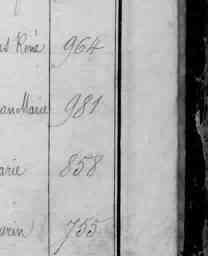 as René 964
an Marie 981
arie 858
urin 755